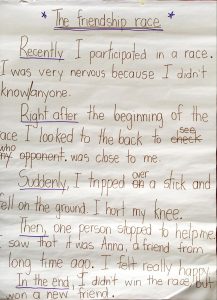 * The friendship race *
Recently I participated in a race.
I was very nervous because I didn't
know anyone.
Right after the beginning of the
ace I looked to the back to check see
who my opponent. was close to me.
Suddenly, I tripped on over a stick and
ell on the ground. I hurt my knee.
Then, one person stopped to help me.
I saw that it was Anna, a friend from
long time ago. I felt really happy.
In the end, I didn't win the race, but
won a new friend.